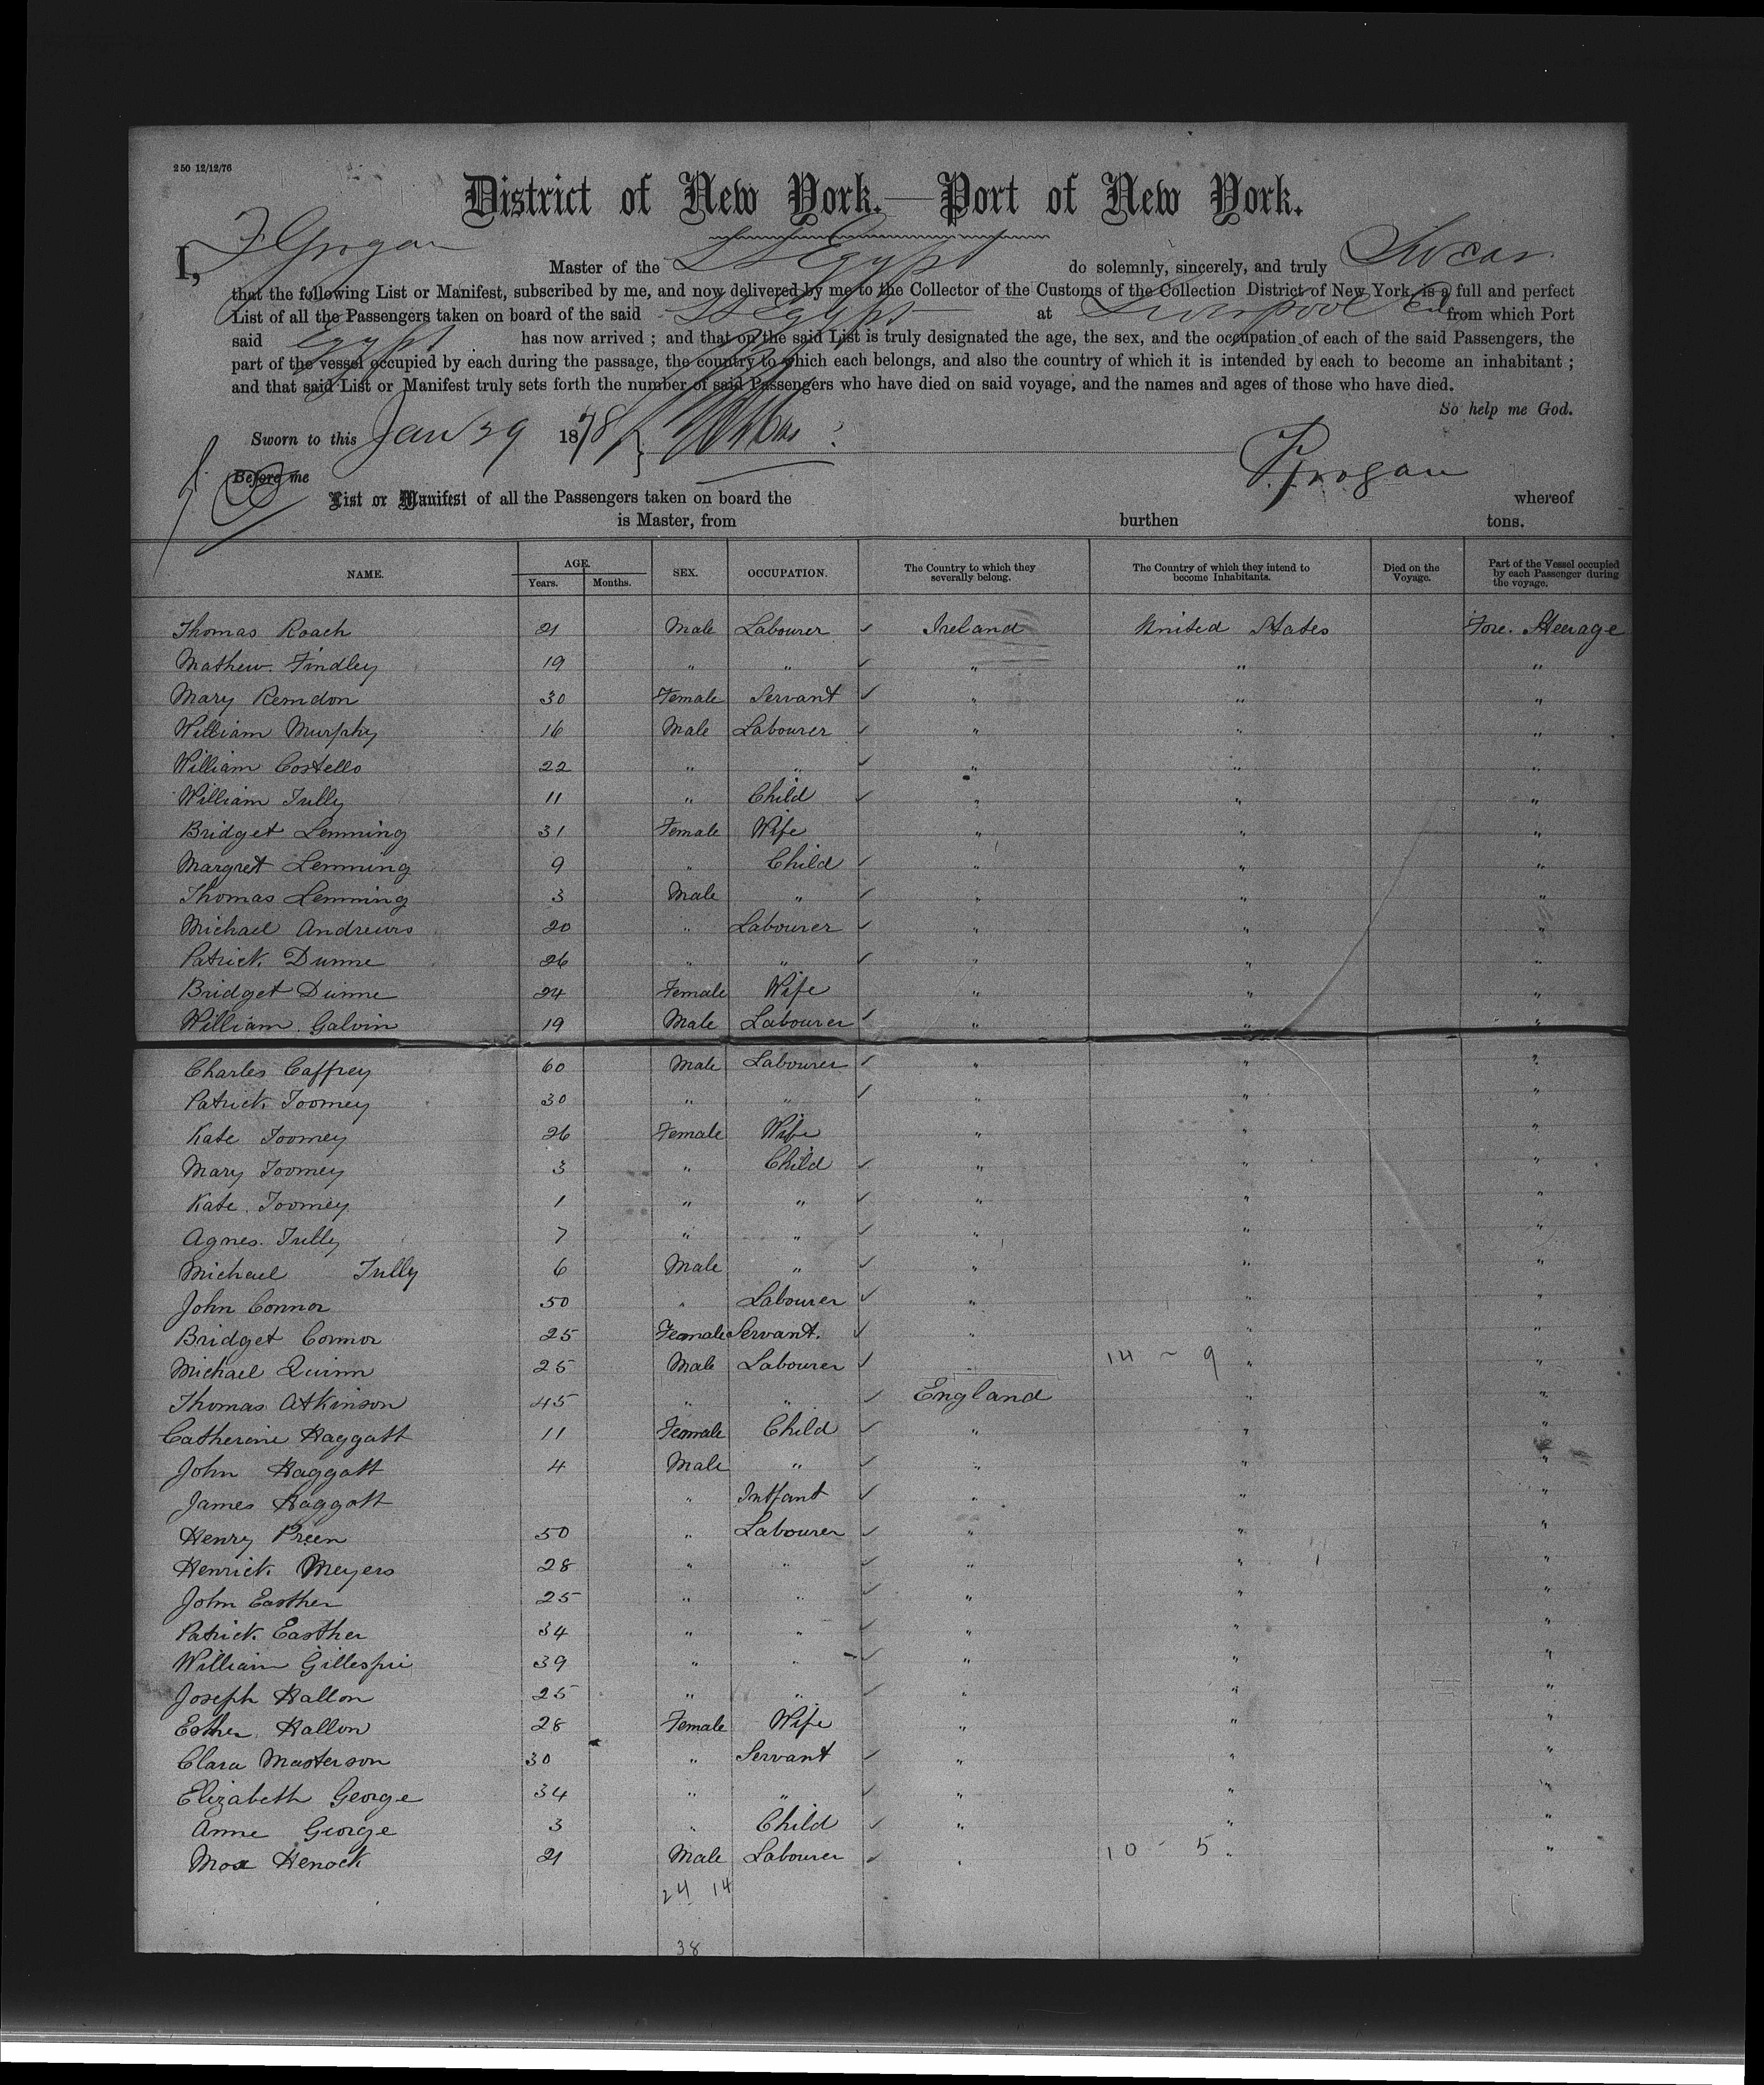 250 12/12/76
District of New York.—Port of New York.
I, F Grogan Master of the SS Egypt do solemnly, sincerely, and truly Swear
that the following List or Manifest, subscribed by me, and now delivered by me to the Collector of the Customs of the Collection District of New York, is a full and perfect
List of all the Passengers taken on board of the said SS Egypt at Liverpool from which Port
said Egypt has now arrived ; and that on the said List is truly designated the age, the sex, and the occupation of each of the said Passengers, the
part of the vessel occupied by each during the passage, the country to which each belongs, and also the country of which it is intended by each to become an inhabitant ;
and that said List or Manifest truly sets forth the number of said Passengers who have died on said voyage, and the names and ages of those who have died.
So help me God.
Sworn to this Jan 29 1878
F. Grogan
Before me
List or Manifest of all the Passengers taken on board the whereof
is Master, from burthen tons.
NAME. AGE. Years. Months. SEX. OCCUPATION. The Country to which they severally belong. The Country of which they intend to become Inhabitants. Died on the Voyage. Part of the Vessel occupied by each Passenger during the voyage.
Thomas Roach 21 Male Labourer ✓ Ireland United States Fore. Steerage
Mathew Findley 19 " " ✓ " " "
Mary Remdon 30 Female Servant ✓ " " "
William Murphy 16 Male Labourer ✓ " " "
William Costello 22 " " ✓ " " "
William Tully 11 " Child ✓ " " "
Bridget Lemming 31 Female Wife " " "
Margret Lemming 9 " Child ✓ " " "
Thomas Lemming 3 Male " ✓ " " "
Michael Andrews 20 " Labourer ✓ " " "
Patrick Dunne 26 " " ✓ " " "
Bridget Dunne 24 Female Wife " " "
William Galvin 19 Male Labourer ✓ " " "
Charles Caffrey 60 Male Labourer ✓ " " "
Patrick Toomey 30 " " ✓ " " "
Kate Toomey 26 Female Wife " " "
Mary Toomey 3 " Child ✓ " " "
Kate Toomey 1 " " ✓ " " "
Agnes Tully 7 " " ✓ " " "
Michael Tully 6 Male " ✓ " " "
John Connor 50 " Labourer ✓ " " "
Bridget Connor 25 Female Servant. ✓ " " "
Michael Quinn 25 Male Labourer ✓ " 14 - 9 " "
Thomas Atkinson 45 " " ✓ England " "
Catherine Haggatt 11 Female Child ✓ " " "
John Haggatt 4 Male " ✓ " " "
James Haggott " Intfant ✓ " " "
Henry Preen 50 " Labourer ✓ " " "
Henrick Meyers 28 " " ✓ " " "
John Easther 25 " " ✓ " " "
Patrick Easther 34 " " ✓ " " "
William Gillespie 39 " " ✓ " " "
Joseph Hallon 25 " " ✓ " " "
Esther Hallon 28 Female Wife " " "
Clara Masterson 30 " Servant ✓ " " "
Elizabeth George 34 " " ✓ " " "
Anne George 3 " Child ✓ " " "
Max Henock 21 Male Labourer ✓ " 10 - 5 " "
24 14
38